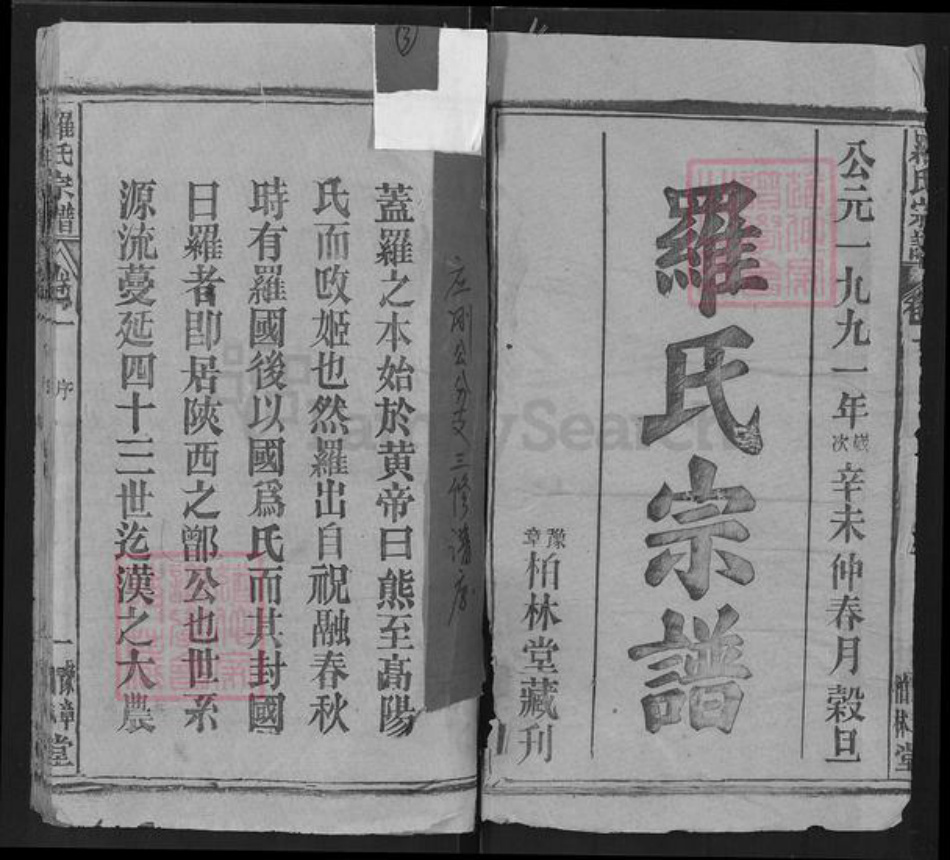 公元一九九一年歲次辛未仲春月穀旦
羅氏宗譜
豫章柏林堂藏刊
③
庄刚公分支三修谱序
蓋羅之本始於黄帝曰熊至高陽
氏而改姬也然羅出自祝融春秋
時有羅國後以國爲氏而其封國
曰羅者卽居陝西之鄫公也世系
源流蔓延四十二世迄漢之大農
羅氏宗譜
卷一
序
一
豫章
堂
FamilySearch